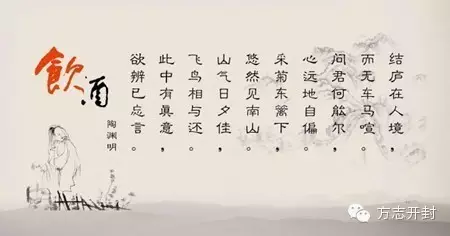 飲酒
陶渊明
结庐在人境，
而无车马喧。
问君何能尔，
心远地自偏。
采菊东篱下，
悠然见南山。
山气日夕佳，
飞鸟相与还。
此中有眞意，
欲辨已忘言。
方志开封